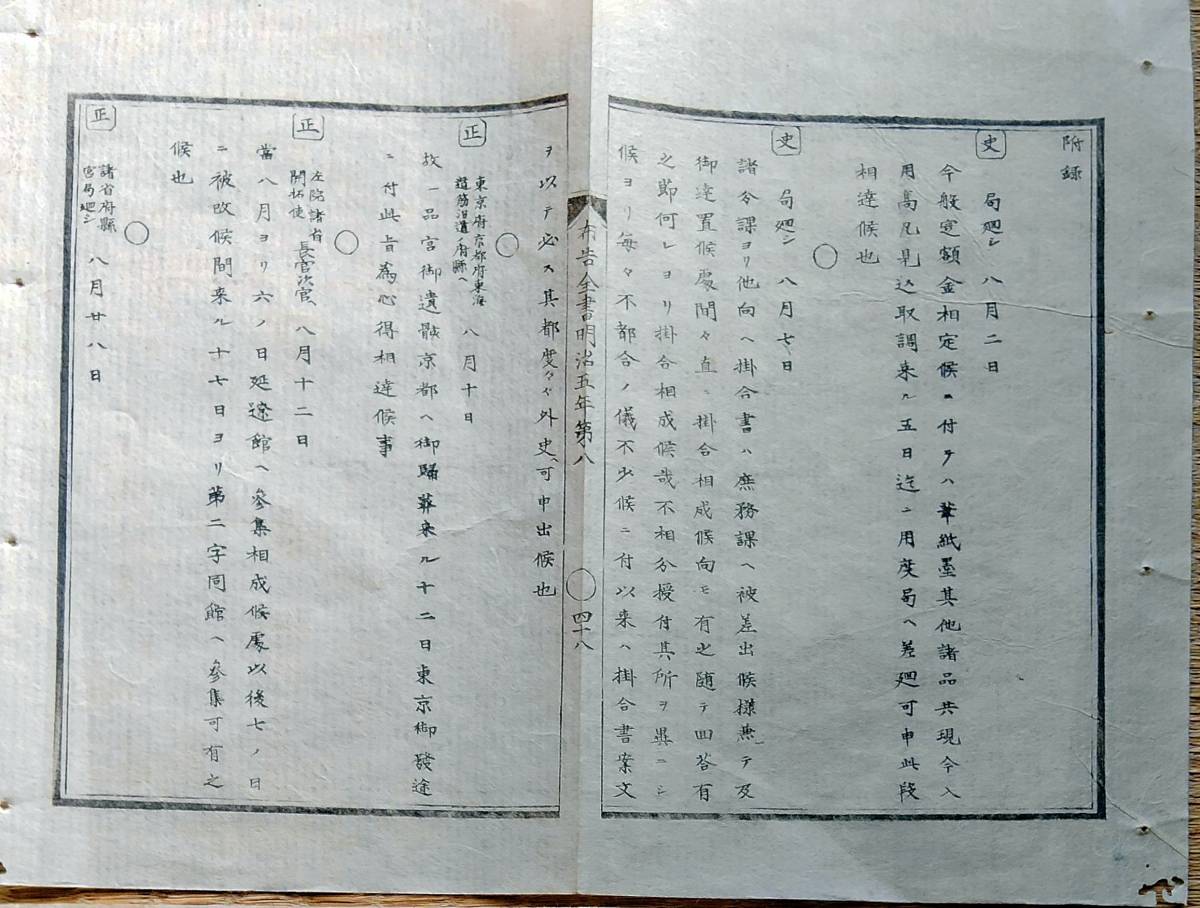 附録
史 局廻シ 八月二日
今般定額金相定候ニ付テハ筆紙墨其他諸品共現今入
用高凡見込取調来ル五日迄ニ用度局ヘ差廻可申此段
相達候也
○
史 局廻シ 八月七日
諸分課ヨリ他向ヘ掛合書ハ庶務課ヘ被差出候様兼テ及
御達置候處間々直ニ掛合相成候向モ有之随テ回答有
之節何レヨリ掛合相成候哉不相分授付其所ヲ異ニシ
候ヨリ毎々不都合ノ儀不少候ニ付以来ハ掛合書案文
布告全書明治五年第八 ○ 四十八
ヲ以テ必ス其都度々々外史ヘ可申出候也
○
正 東京府京都府東海
道筋沿道ノ府縣ヘ 八月十日
故一品宮御遺骸京都ヘ御歸葬来ル十二日東京御發途
ニ付此旨為心得相達候事
○
正 左院諸省
開拓使 長官次官 八月十二日
當八月ヨリ六ノ日延遼館ヘ參集相成候處以後七ノ日
ニ被改候間来ル十七日ヨリ第二字同館ヘ參集可有之
候也
○
正 諸省府縣
宮局廻シ 八月廿八日